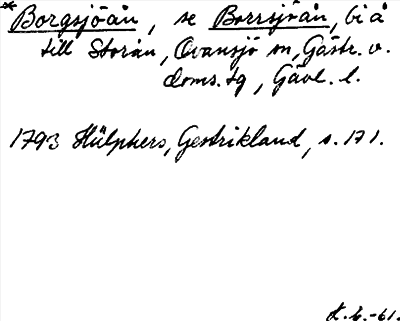 *Borgsjöån, se Borrsjöån, bi å
till Storån, Ovansjö sn, Gästr. v.
doms. tg, Gävl. l.
1793 Hülphers, Gestrikland, s. 171.
K. L. -61.